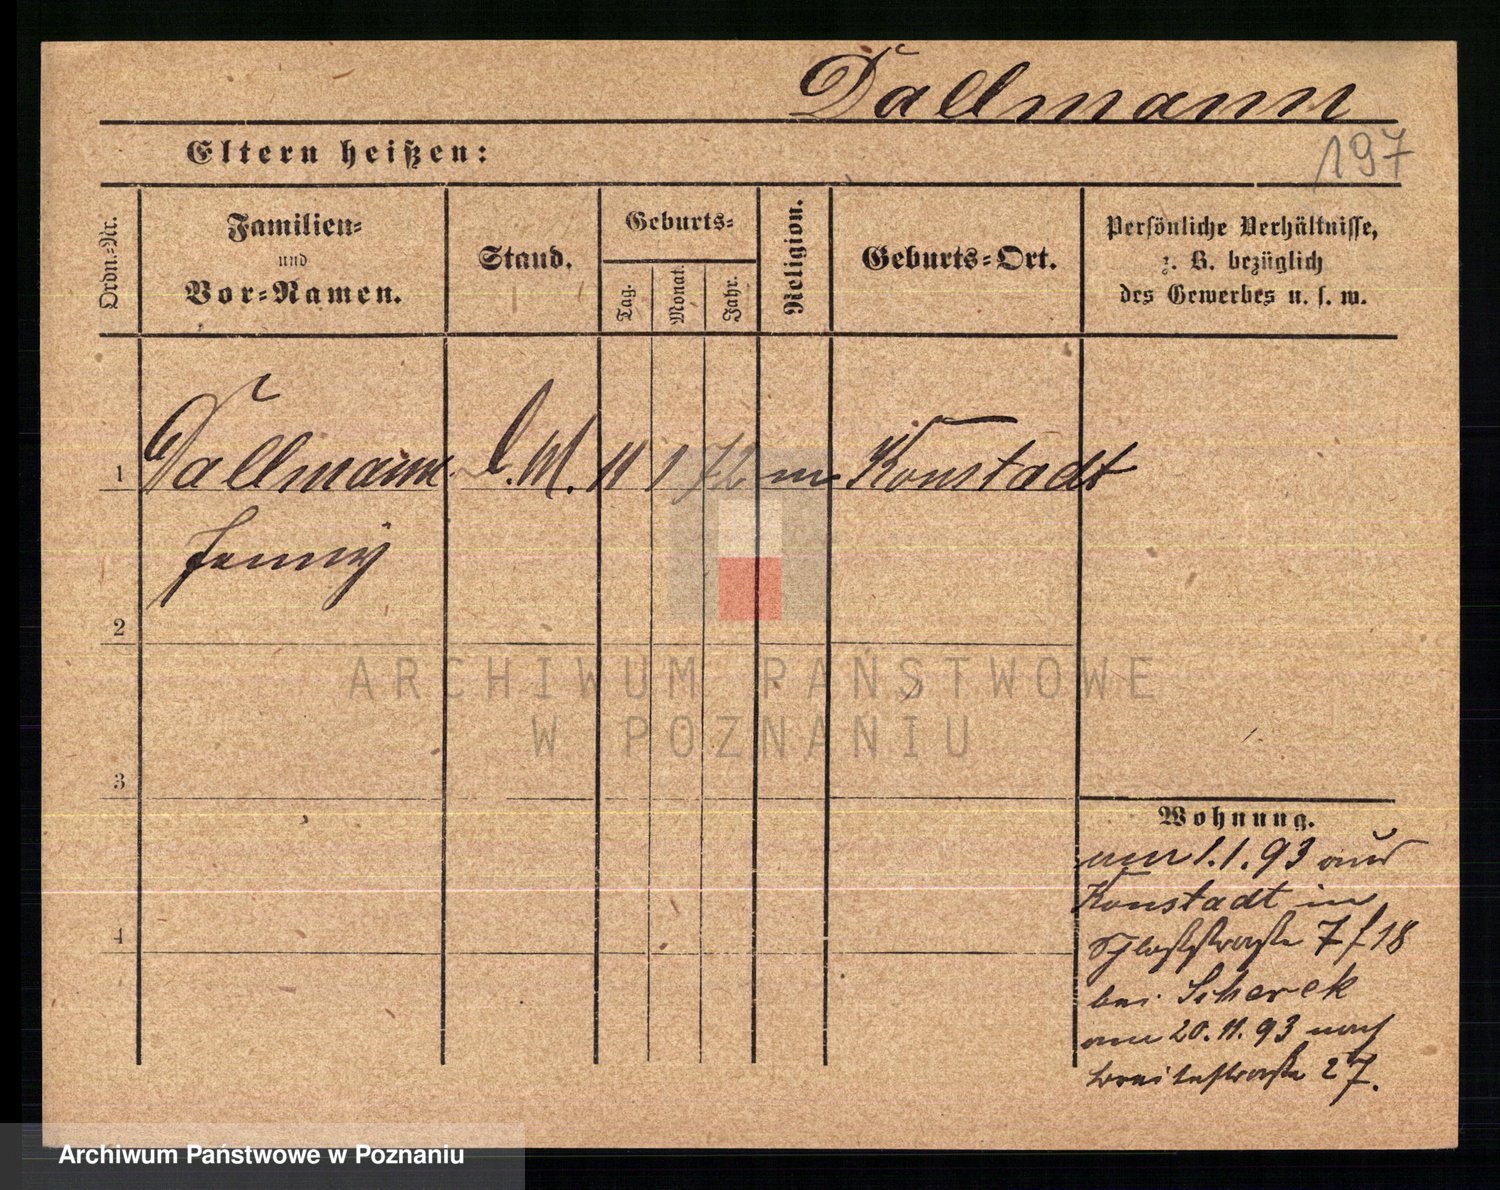 Dallmann
197
Eltern heißen:
Ordn.-Nr.
Familien-
und
Vor-Namen.
Stand.
Geburts-
Tag.
Monat.
Jahr.
Religion.
Geburts-Ort.
Persönliche Verhältnisse,
z. B. bezüglich
des Gewerbes u. s. w.
1 Dallmann 11 1 72 m Konstadt
Jenny
2
3
4
Wohnung.
am 1.1.93 aus
Konstadt in
Schloßstraße 7 f 18
bei Scherek
am 20.11.93 nach
Breitestraße 27.
ARCHIWUM PAŃSTWOWE
W POZNANIU
Archiwum Państwowe w Poznaniu